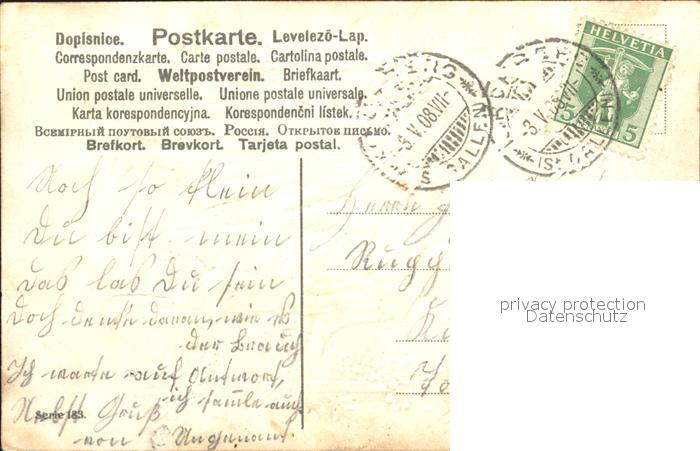 Dopisnice. Postkarte. Levelező-Lap.
Correspondenzkarte. Carte postale. Cartolina postale.
Post card. Weltpostverein. Briefkaart.
Union postale universelle. Unione postale universale.
Karta korespondencyjna. Korespondenční lístek.
Всемірный почтовый союзъ. Россія. Открытое письмо.
Brefkort. Brevkort. Tarjeta postal.
HELVETIA
5 5
8.V.08.VII-
(ST. GALLEN)
8.V.08.VII-
(ST. GALLEN)
Noch so klein
Du bist mein
das las Du sein
Doch denke daran, wie es
der Brauch
Ich warte auf Antwort,
ich samle auch
Nebst Gruß
von Ungenant.
Serie 183.
Herrn
privacy protection
Datenschutz